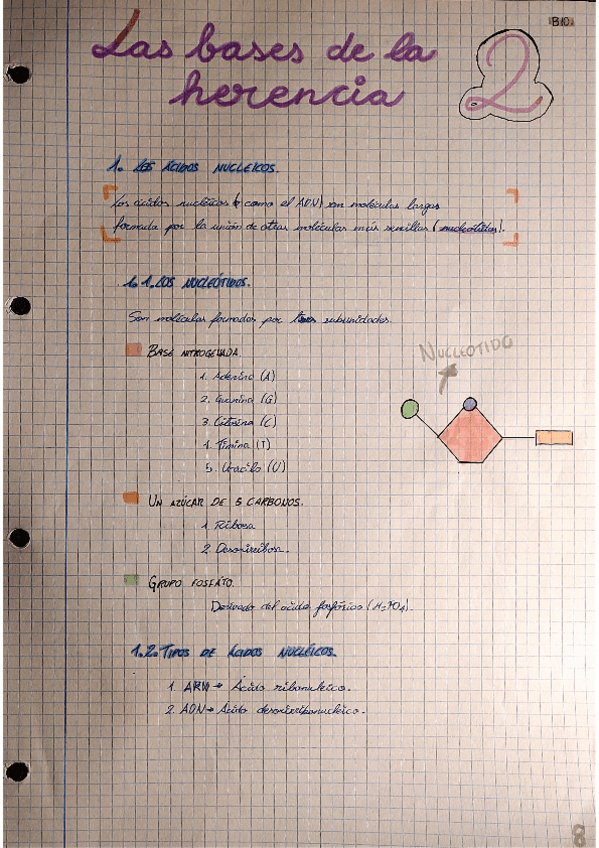 BIO.
Las bases de la
herencia
2
1. LOS ÁCIDOS NUCLEICOS.
Los ácidos nucléicos (como el ADN) son moléculas largas
formula por la unión de otras moléculas más sencillas (nucleótidos).
1.1. LOS NUCLEÓTIDOS.
Son moléculas formados por tres subunidades.
NUCLEOTIDO
BASE NITROGENADA.
1. Adenina (A)
2. Guanina (G)
3. Citosina (C)
4. Timina (T)
5. Uracilo (U)
UN AZÚCAR DE 5 CARBONOS.
1. Ribosa
2. Desoxirribosa.
GRUPO FOSFATO.
Derivado del acido fosfórico (H3PO4).
1.2. TIPOS DE ÁCIDOS NUCLÉICOS.
1. ARN → Ácido ribonucleico.
2. ADN → Ácido desoxirribonucleico.
8